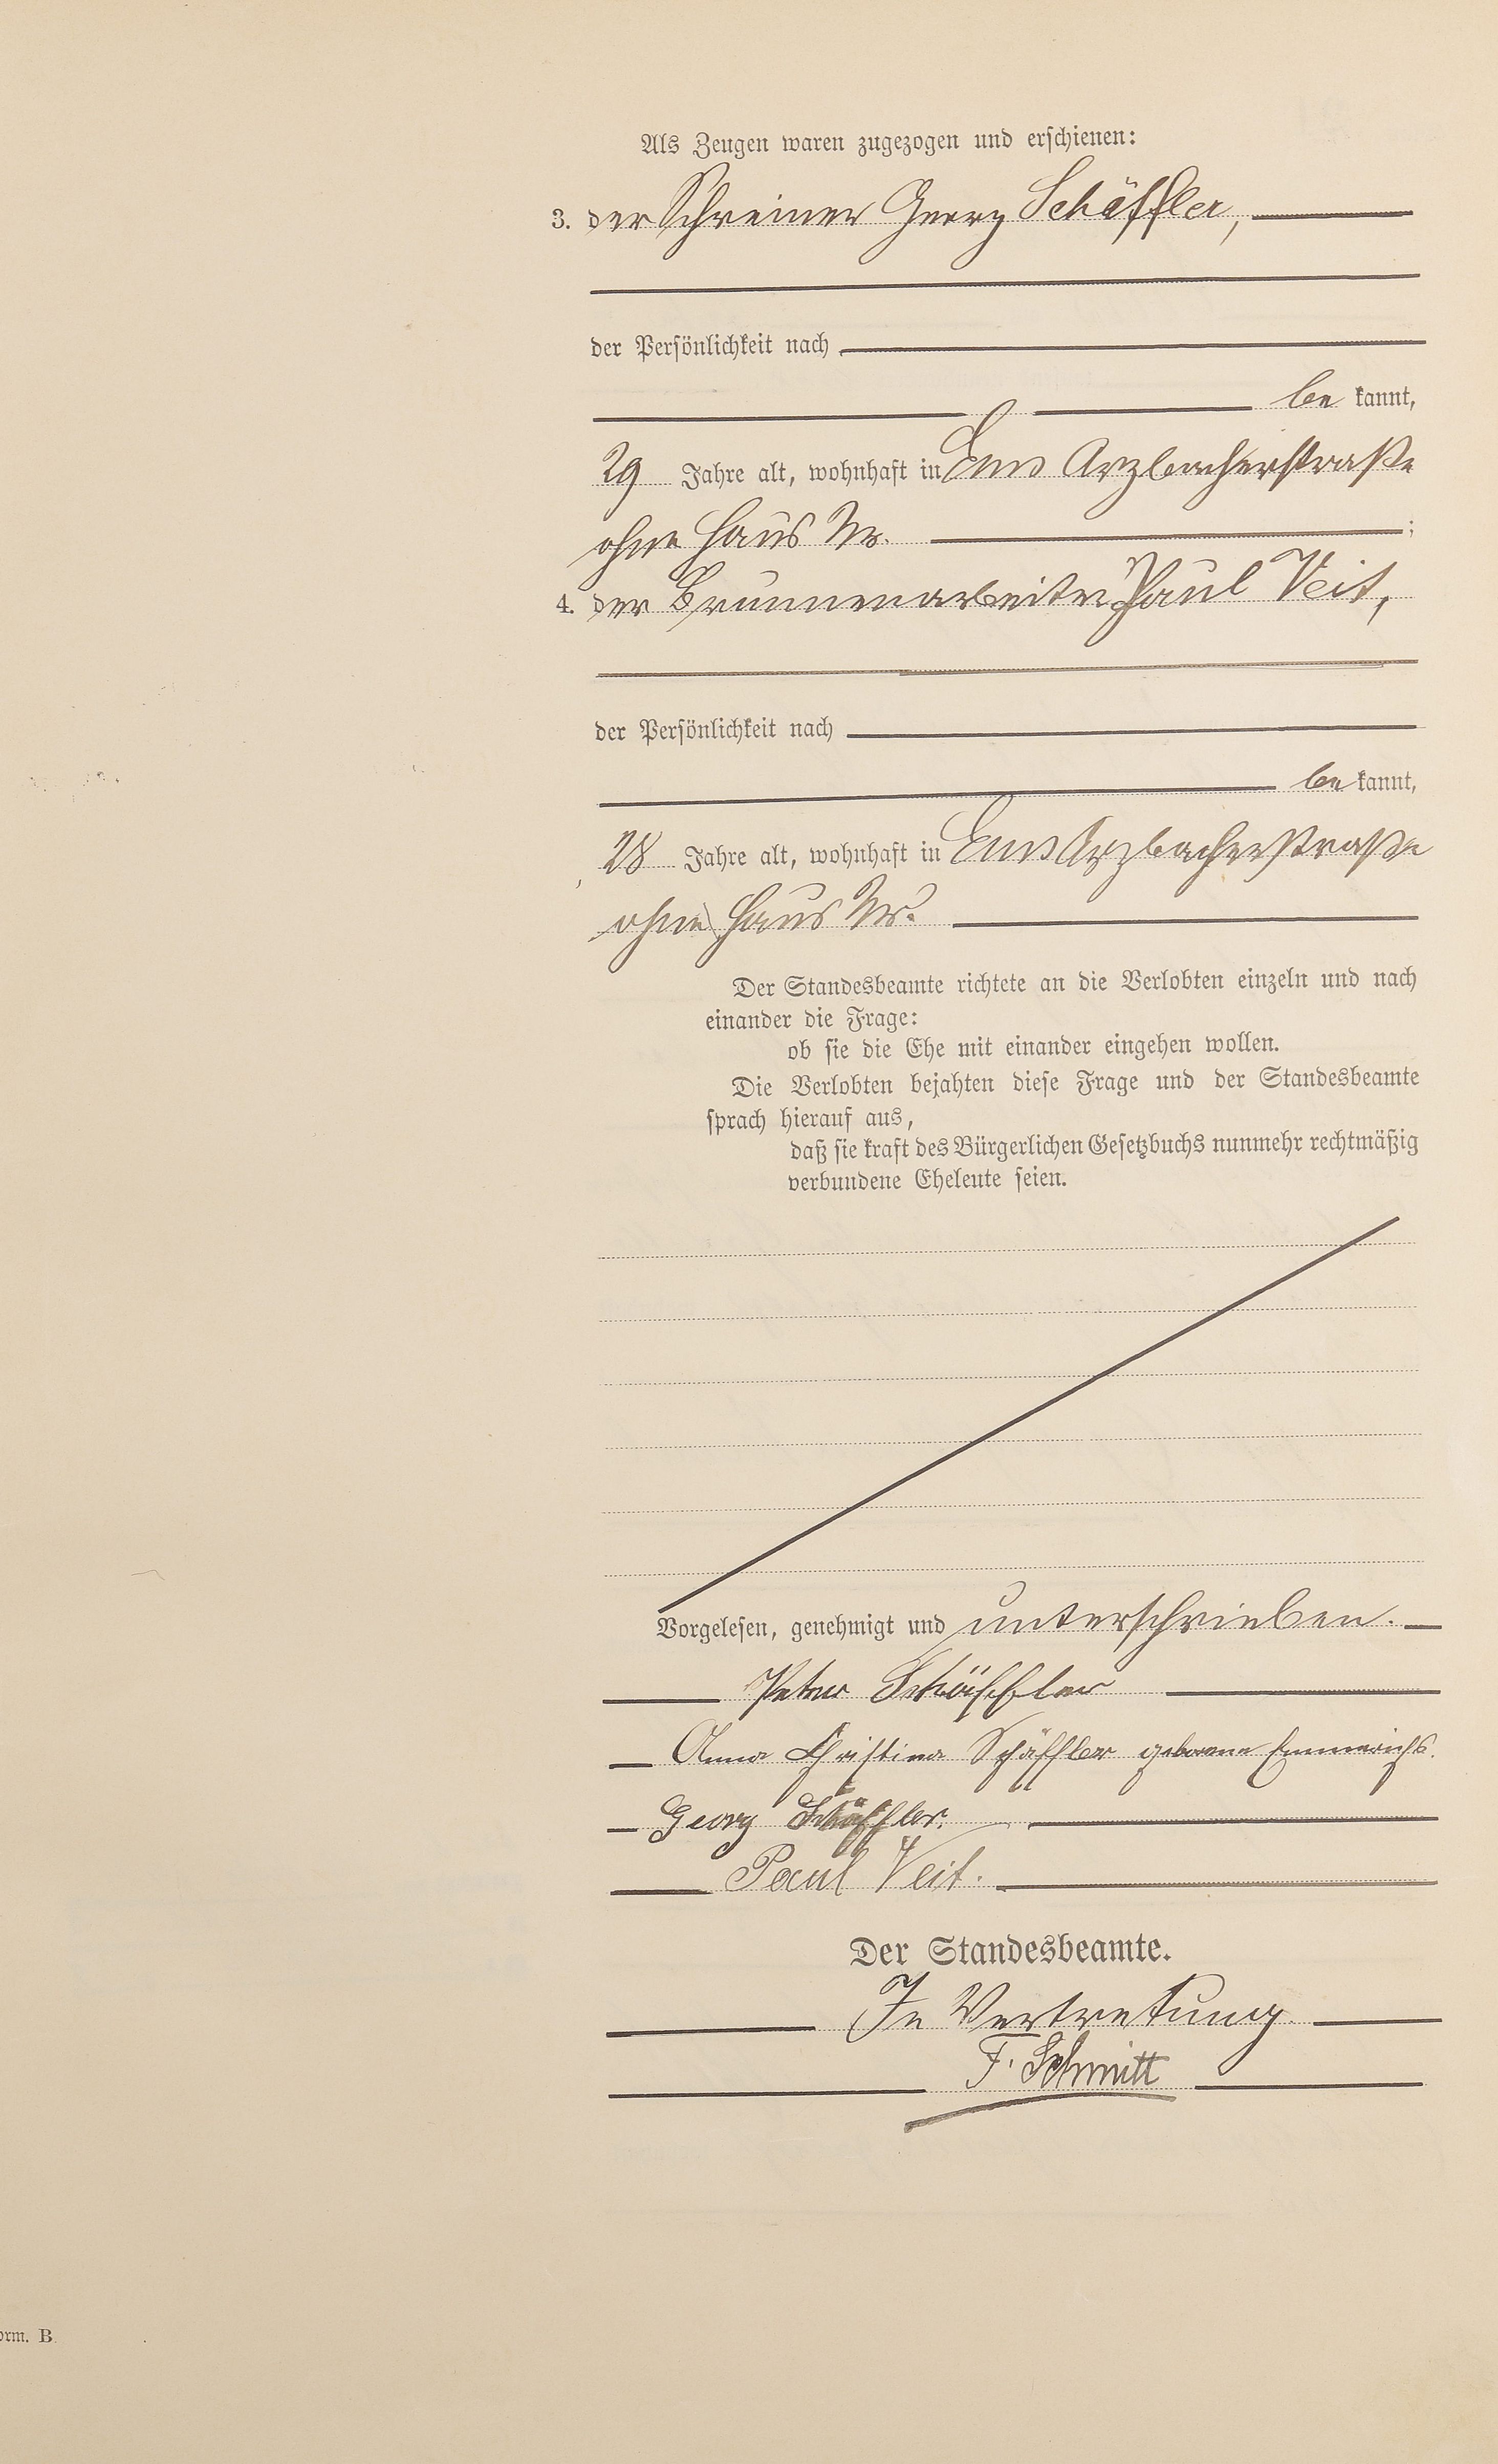 Als Zeugen waren zugezogen und erschienen:
3. der Schreiner Georg Schäffler,
der Persönlichkeit nach
be kannt,
29 Jahre alt, wohnhaft in Ems Arzbacherstraße
ohne Haus Nr. ;
4. der Brunnenarbeiter Paul Veit,
der Persönlichkeit nach
be kannt,
28 Jahre alt, wohnhaft in Ems Arzbacherstraße
ohne Haus Nr.
Der Standesbeamte richtete an die Verlobten einzeln und nach
einander die Frage:
ob sie die Ehe mit einander eingehen wollen.
Die Verlobten bejahten diese Frage und der Standesbeamte
sprach hierauf aus,
daß sie kraft des Bürgerlichen Gesetzbuchs nunmehr rechtmäßig
verbundene Eheleute seien.
Vorgelesen, genehmigt und unterschrieben.
Peter Schäffler
Anna Christina Schäffler geborene Emmerichs.
Georg Schäffler.
Paul Veit.
Der Standesbeamte.
In Vertretung
F. Schmitt
orm. B.